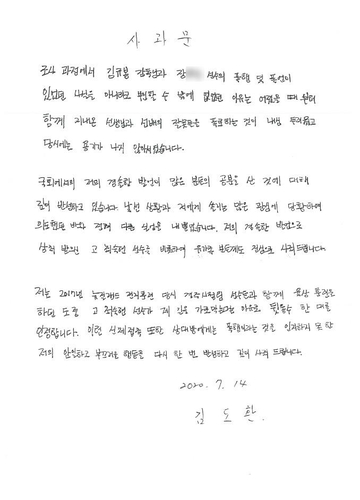 사 과 문
조사 과정에서 김규봉 감독님과 장 선수의 폭행 및 폭언이
있었던 사실을 아니라고 부인할 수 밖에 없었던 이유는 어렸을 때부터
함께 지내온 선생님과 선배의 잘못들을 폭로하는 것이 내심 두려웠고
당시에는 용기가 나지 않아서였습니다.
국회에서의 저의 경솔한 발언이 많은 분들의 공분을 산 것에 대해
깊이 반성하고 있습니다. 낯선 상황과 저에게 쏟기는 많은 질문에 당황하여
의도했던 바와 전혀 다른 실언을 내뱉었습니다. 저의 경솔한 발언으로
상처 받으신 고 최숙현 선수를 비롯하여 유가족 분들께도 진심으로 사죄드립니다.
저는 2017년 뉴질랜드 전지훈련 당시 경주시청팀 선수들과 함께 육상 훈련을
하던 도중 고 최숙현 선수가 제 길을 가로막는다는 이유로 뒷통수 한 대를
인정합니다. 이런 신체접촉 또한 상대방에게는 폭행이라는 것을 인지하지 못한
저의 안일하고 부끄러운 행동을 다시 한 번 반성하고 깊이 사죄 드립니다.
2020. 7. 14
김 도 환